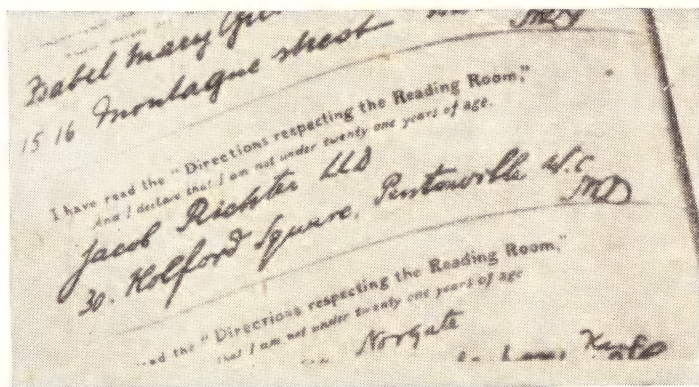 Isabel Mary
15 16 Montague street
I have read the "Directions respecting the Reading Room,"
And I declare that I am not under twenty one years of age.
Jacob Richter LLD
30. Holford Square, Pentonville W.C
read the "Directions respecting the Reading Room,"
that I am not under twenty one years of age
Norgate